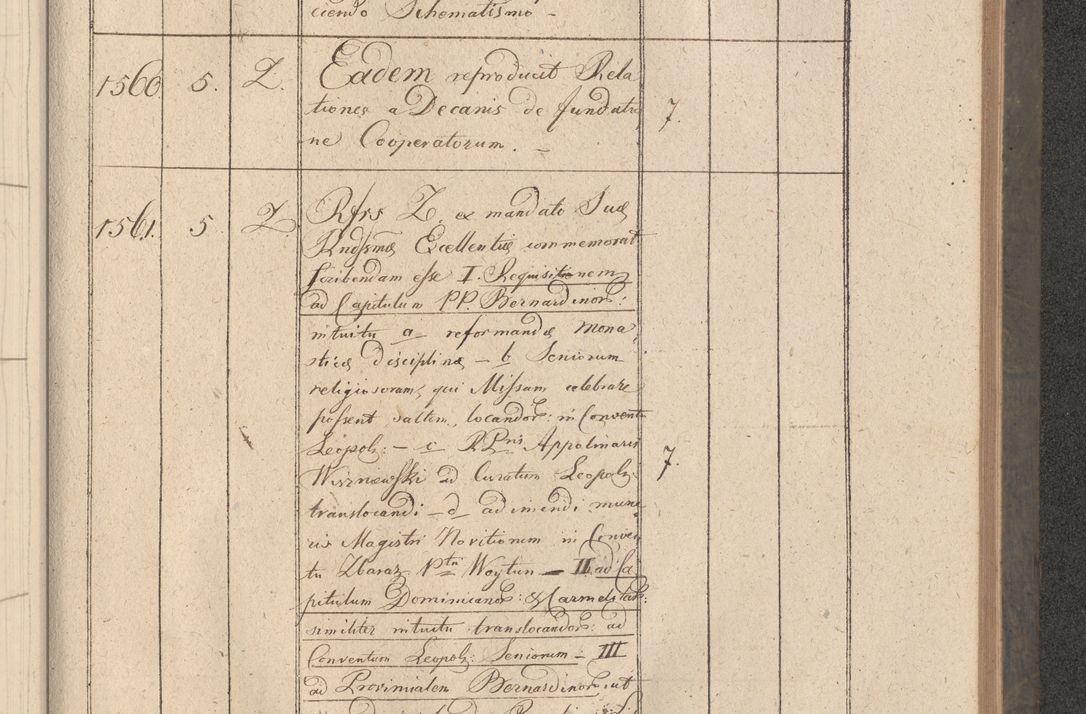 ciendo Schematismo –
1560 5. Z. Eadem reproducit Rela
tiones a Decanis de fundatio 7.
ne Cooperatorum. –
1561. 5 Z Rfrs Z. ex mandato Suæ
Rndssmæ Excellentiæ commemorat
scribendam esse I. Requisitionem
ad Capitulum PP. Bernardinor:
intuitu a reformandæ Mona
sticæ disciplinæ – b Seniorum
religiosorum, qui Missam celebrare
possent saltem, locandor: in Conventu
Leopol: – c RPris Appolinaris
Wiszniewski ad Curatum Leopol: 7.
translocandi – d adimendi mune
ris Magistri Novitiorum in Conven
tu Zbaraz Ptri Woytun – II ad Ca
pitulum Dominicanor: & Carmelitar:
similiter intuitu translocandor: ad
Conventum Leopol: Seniorum – III
ad Provinialem Bernardinor: ut